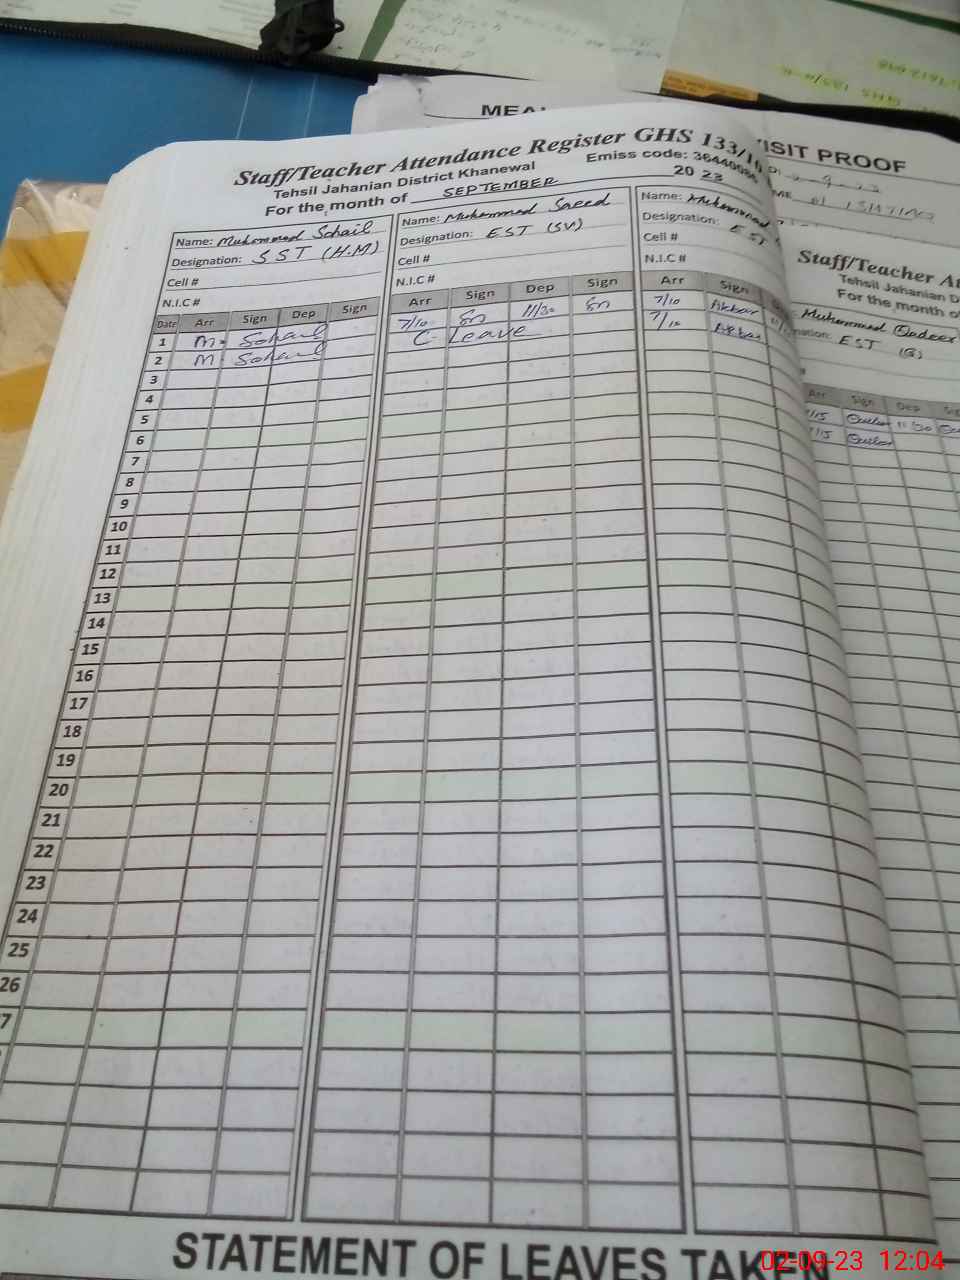 MEA
VISIT PROOF
Staff/Teacher Attendance Register GHS 133/10
Tehsil Jahanian District Khanewal Emiss code: 3644000
For the month of SEPTEMBER 2023
Name: Muhammad Sohail
Designation: SST (H.M)
Cell #
N.I.C #
Name: Muhammad Saeed
Designation: EST (SV)
Cell #
N.I.C #
Name: Muhammad
Designation: EST
Cell #
N.I.C #
Date Arr Sign Dep Sign Arr Sign Dep Sign Arr Sign
1 M. Sohail 7/10 Sn 11/30 Sn 7/10 Akbar
2 M Sohail C- Leave 7/10 Akbar
3
4
5
6
7
8
9
10
11
12
13
14
15
16
17
18
19
20
21
22
23
24
25
26
7
STATEMENT OF LEAVES TAKEN
Staff/Teacher At
Tehsil Jahanian D
For the month o
Muhammad Qadeer
nation: EST (G)
Arr Sign Dep Sig
/15 11/30
/15
02-09-23 12:04